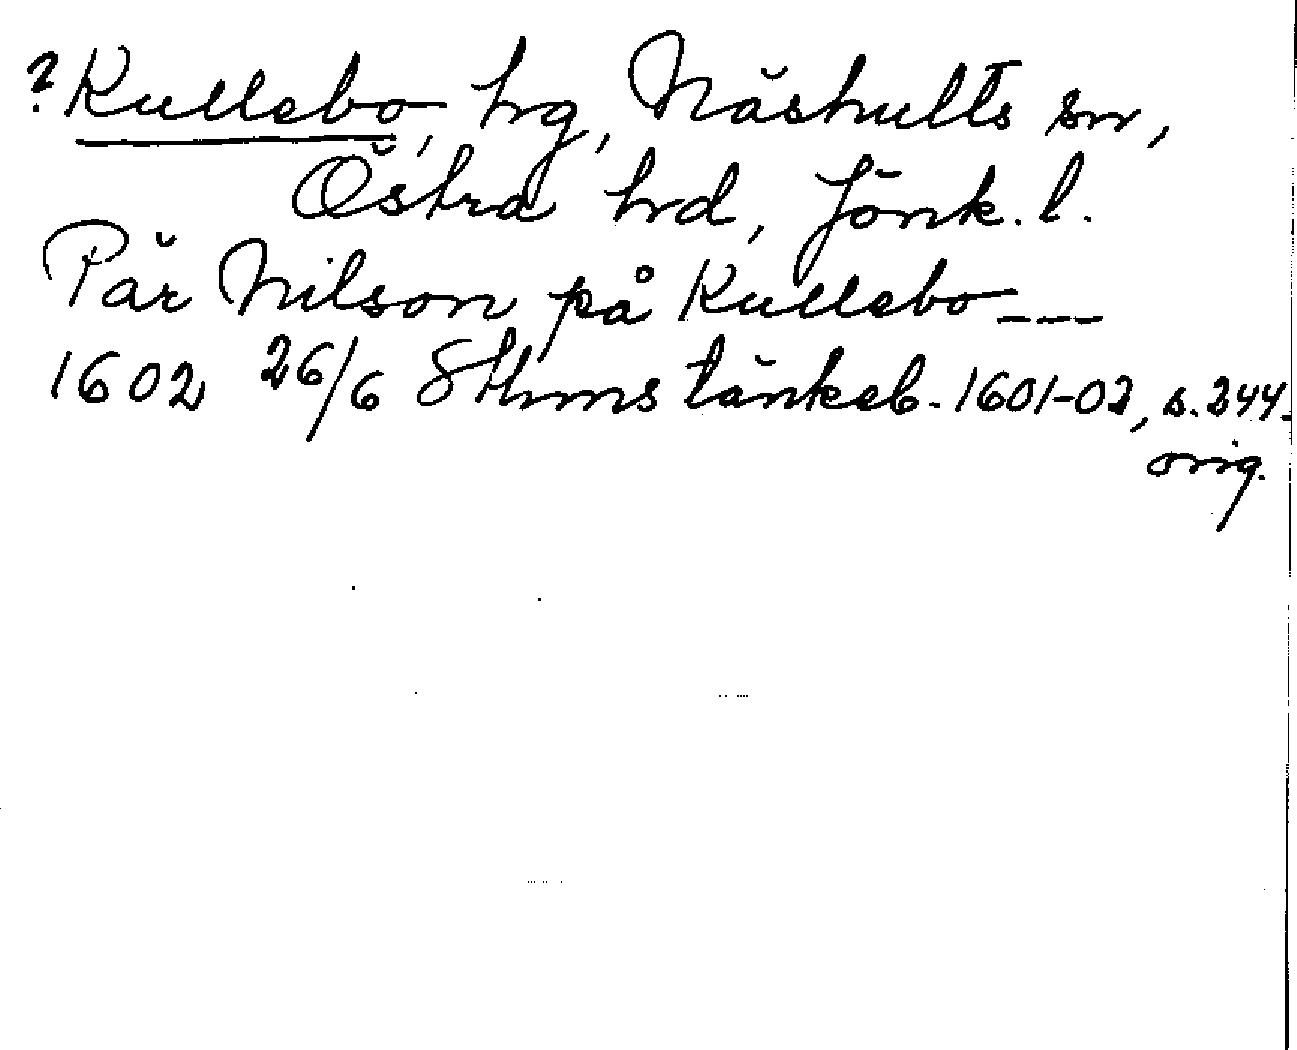 ? Kullebo, hg, Näshults sn,
Östra hrd, Jönk. l.
Pär Nilson på Kullebo ---
1602 26/6 Sthms tänkeb. 1601-02, s. 244.
orig.